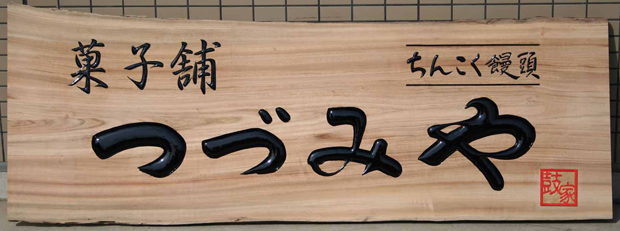 菓子舗
ちんこく饅頭
つづみや
鼓家